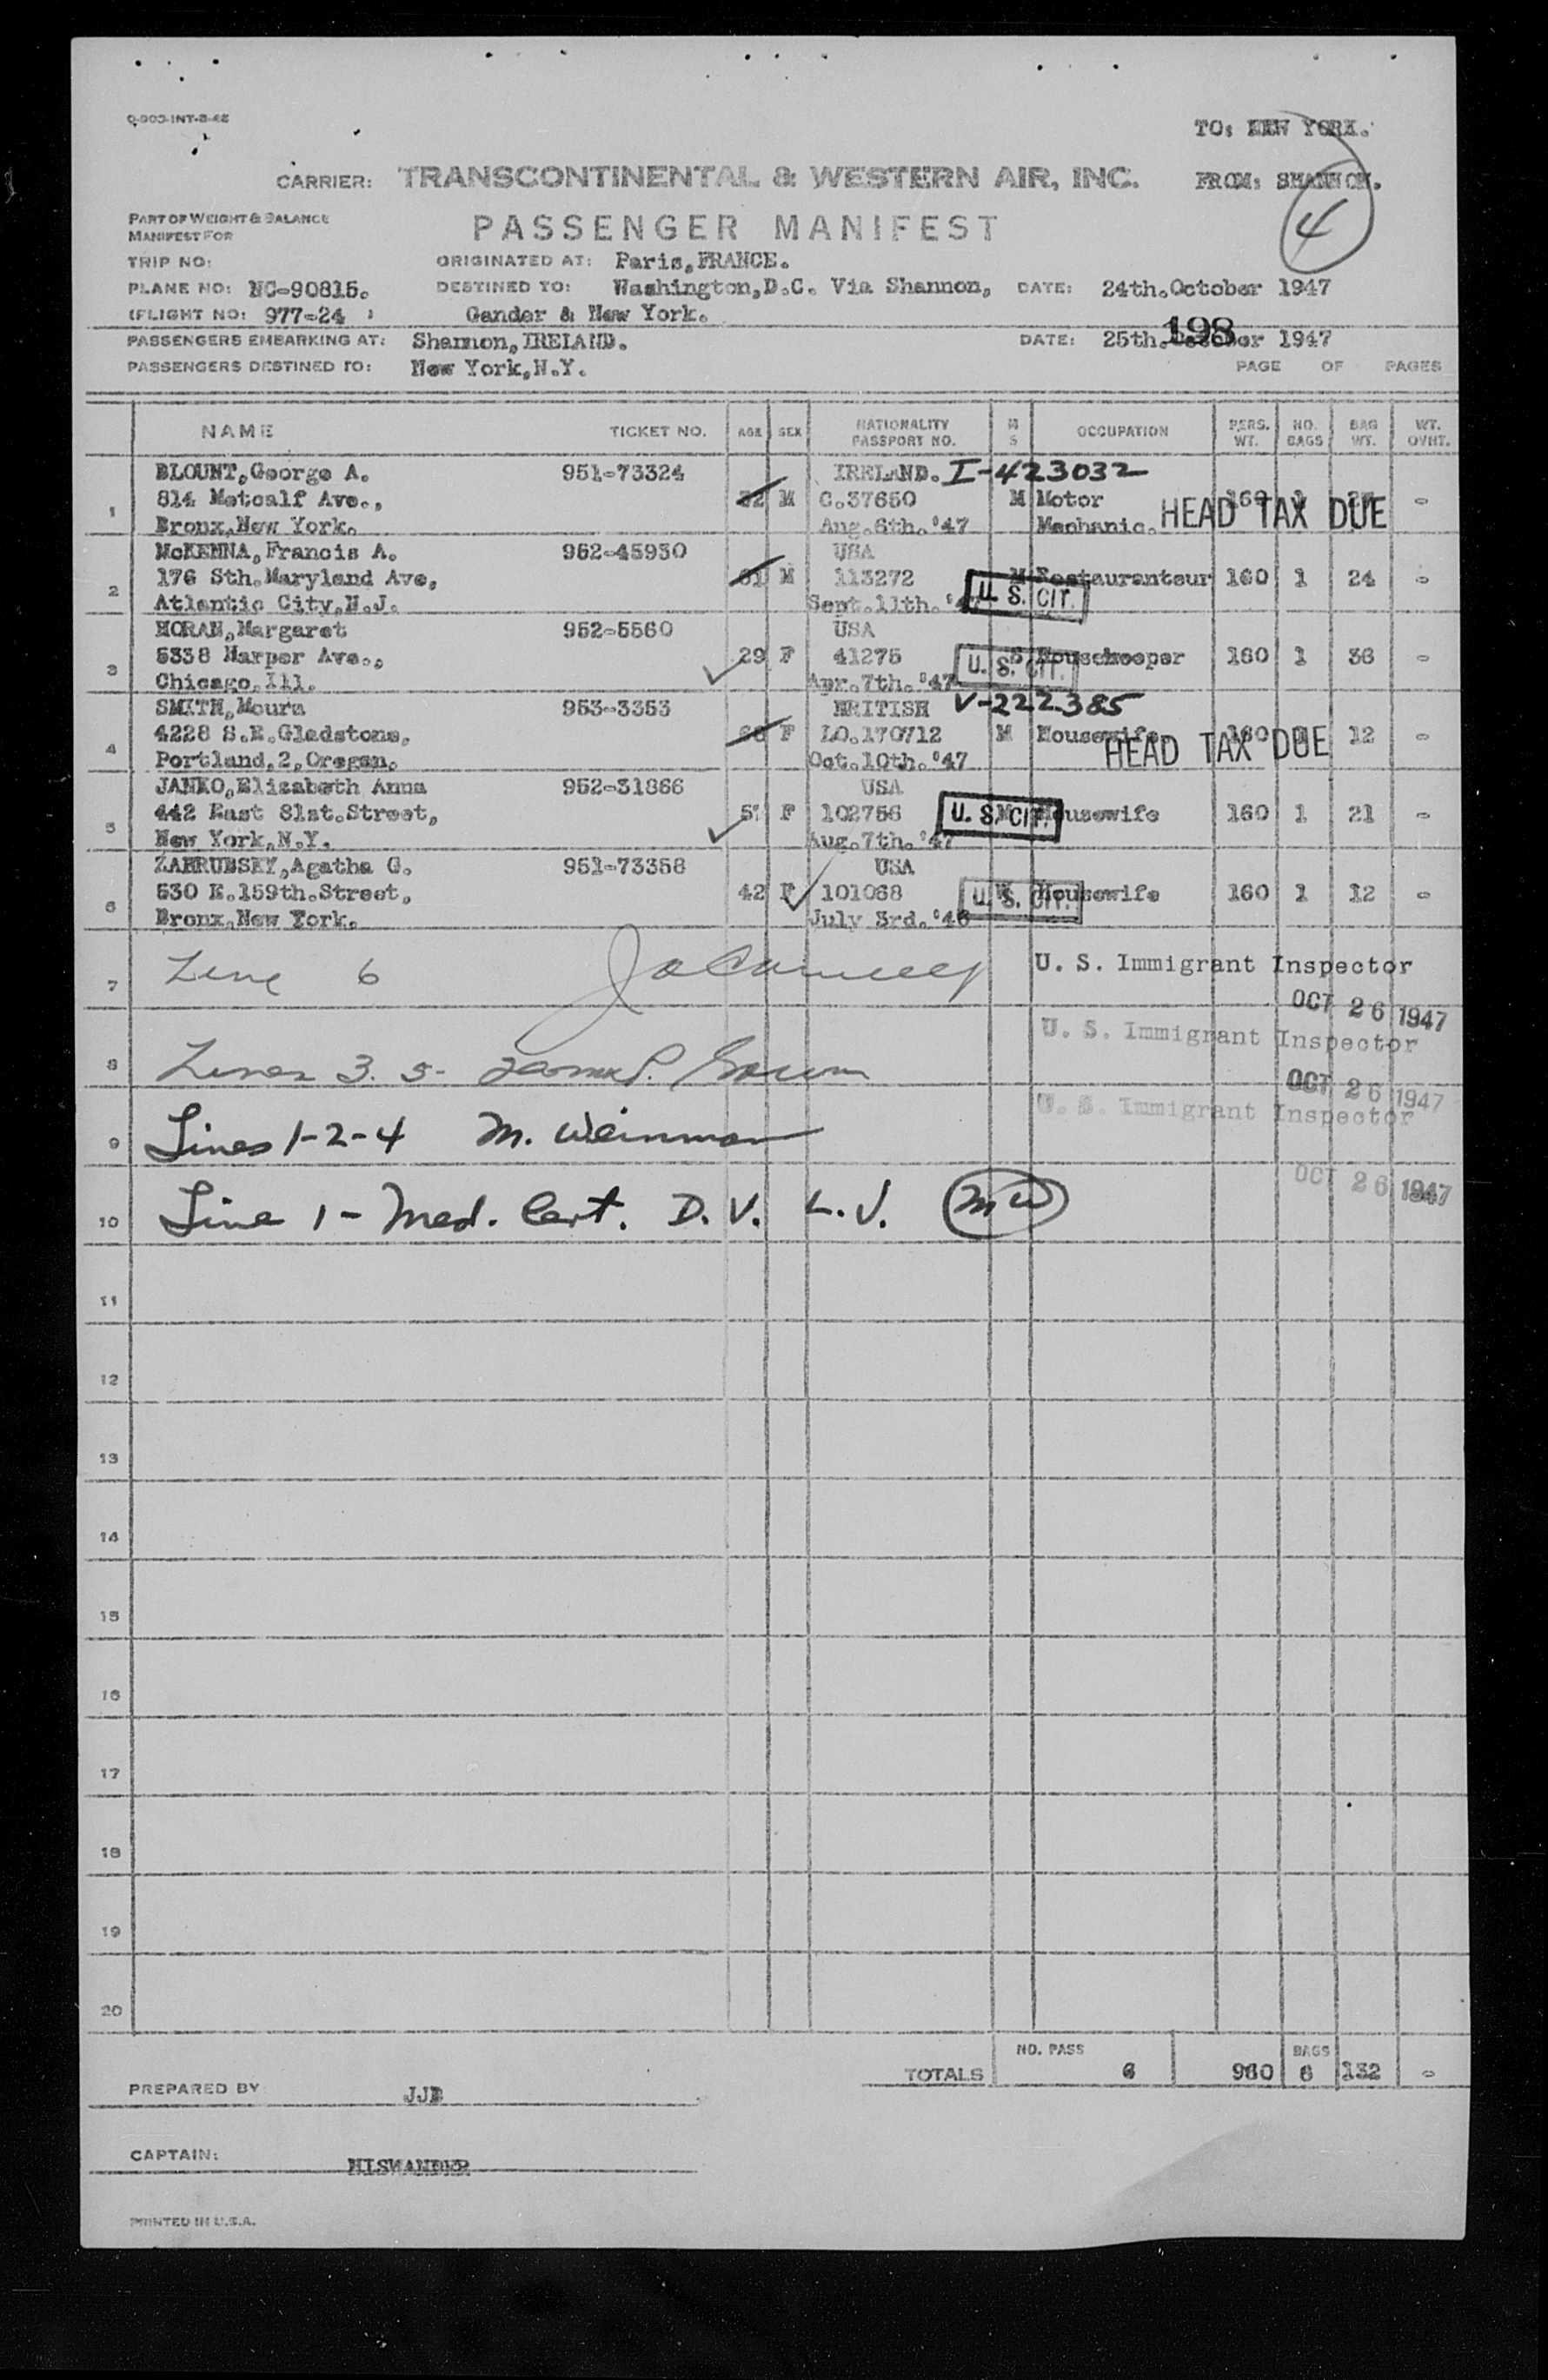 O-903-INT-8-46
TO: NEW YORK.
CARRIER: TRANSCONTINENTAL & WESTERN AIR, INC. FROM: SHANNON.
PART OF WEIGHT & BALANCE
MANIFEST FOR
PASSENGER MANIFEST
4
TRIP NO: ORIGINATED AT: Paris,FRANCE.
PLANE NO: NC-90815. DESTINED TO: Washington,D.C. Via Shannon, DATE: 24th.October 1947
(FLIGHT NO: 977-24 ) Gander & New York.
198
PASSENGERS EMBARKING AT: Shannon,IRELAND. DATE: 25th.October 1947
PASSENGERS DESTINED TO: New York,N.Y. PAGE OF PAGES
NAME TICKET NO. AGE SEX NATIONALITY PASSPORT NO. M S OCCUPATION PERS. WT. NO. BAGS BAG WT. WT. OVHT.
BLOUNT,George A. 951-73324 IRELAND. I-423032
1 814 Metcalf Ave., 32 M C.37650 M Motor 160 1 -
Bronx,New York. Aug.6th.'47 Mechanic. HEAD TAX DUE
McKENNA,Francis A. 952-45930 USA
2 176 Sth.Maryland Ave, 61 M 113272 M Restauranteur 160 1 24 -
Atlantic City,N.J. Sept.11th.'47 U. S. CIT.
HORAN,Margaret 952-5560 USA
3 5338 Harper Ave., 29 F 41275 S Housekeeper 160 1 36 -
Chicago,Ill. Apr.7th.'47 U. S. CIT.
SMITH,Moura 953-3353 BRITISH V-222385
4 4228 S.E.Gladstone, F LO.170712 M Housewife 160 12 -
Portland,2,Oregon. Oct.10th.'47 HEAD TAX DUE
JANKO,Elizabeth Anna 952-31866 USA
5 442 East 81st.Street, F 102756 M Housewife 160 1 21 -
New York,N.Y. Aug.7th.'47 U. S. CIT.
ZABRUBSKY,Agatha G. 951-73358 USA
6 530 E.159th.Street, 42 F 101068 Housewife 160 1 12 -
Bronx,New York. July 3rd.'46 U. S. CIT.
7 Line 6 U. S. Immigrant Inspector
OCT 26 1947
U. S. Immigrant Inspector
8 Lines 3. 5-
OCT 26 1947
U. S. Immigrant Inspector
9 Lines 1-2-4 M. Weinman
OCT 26 1947
10 Line 1 - Med. Cert. D. V. L. V. MW
11
12
13
14
15
16
17
18
19
20
NO. PASS BAGS
TOTALS 6 960 6 132 -
PREPARED BY JJB
CAPTAIN: NISWANDER
PRINTED IN U.S.A.